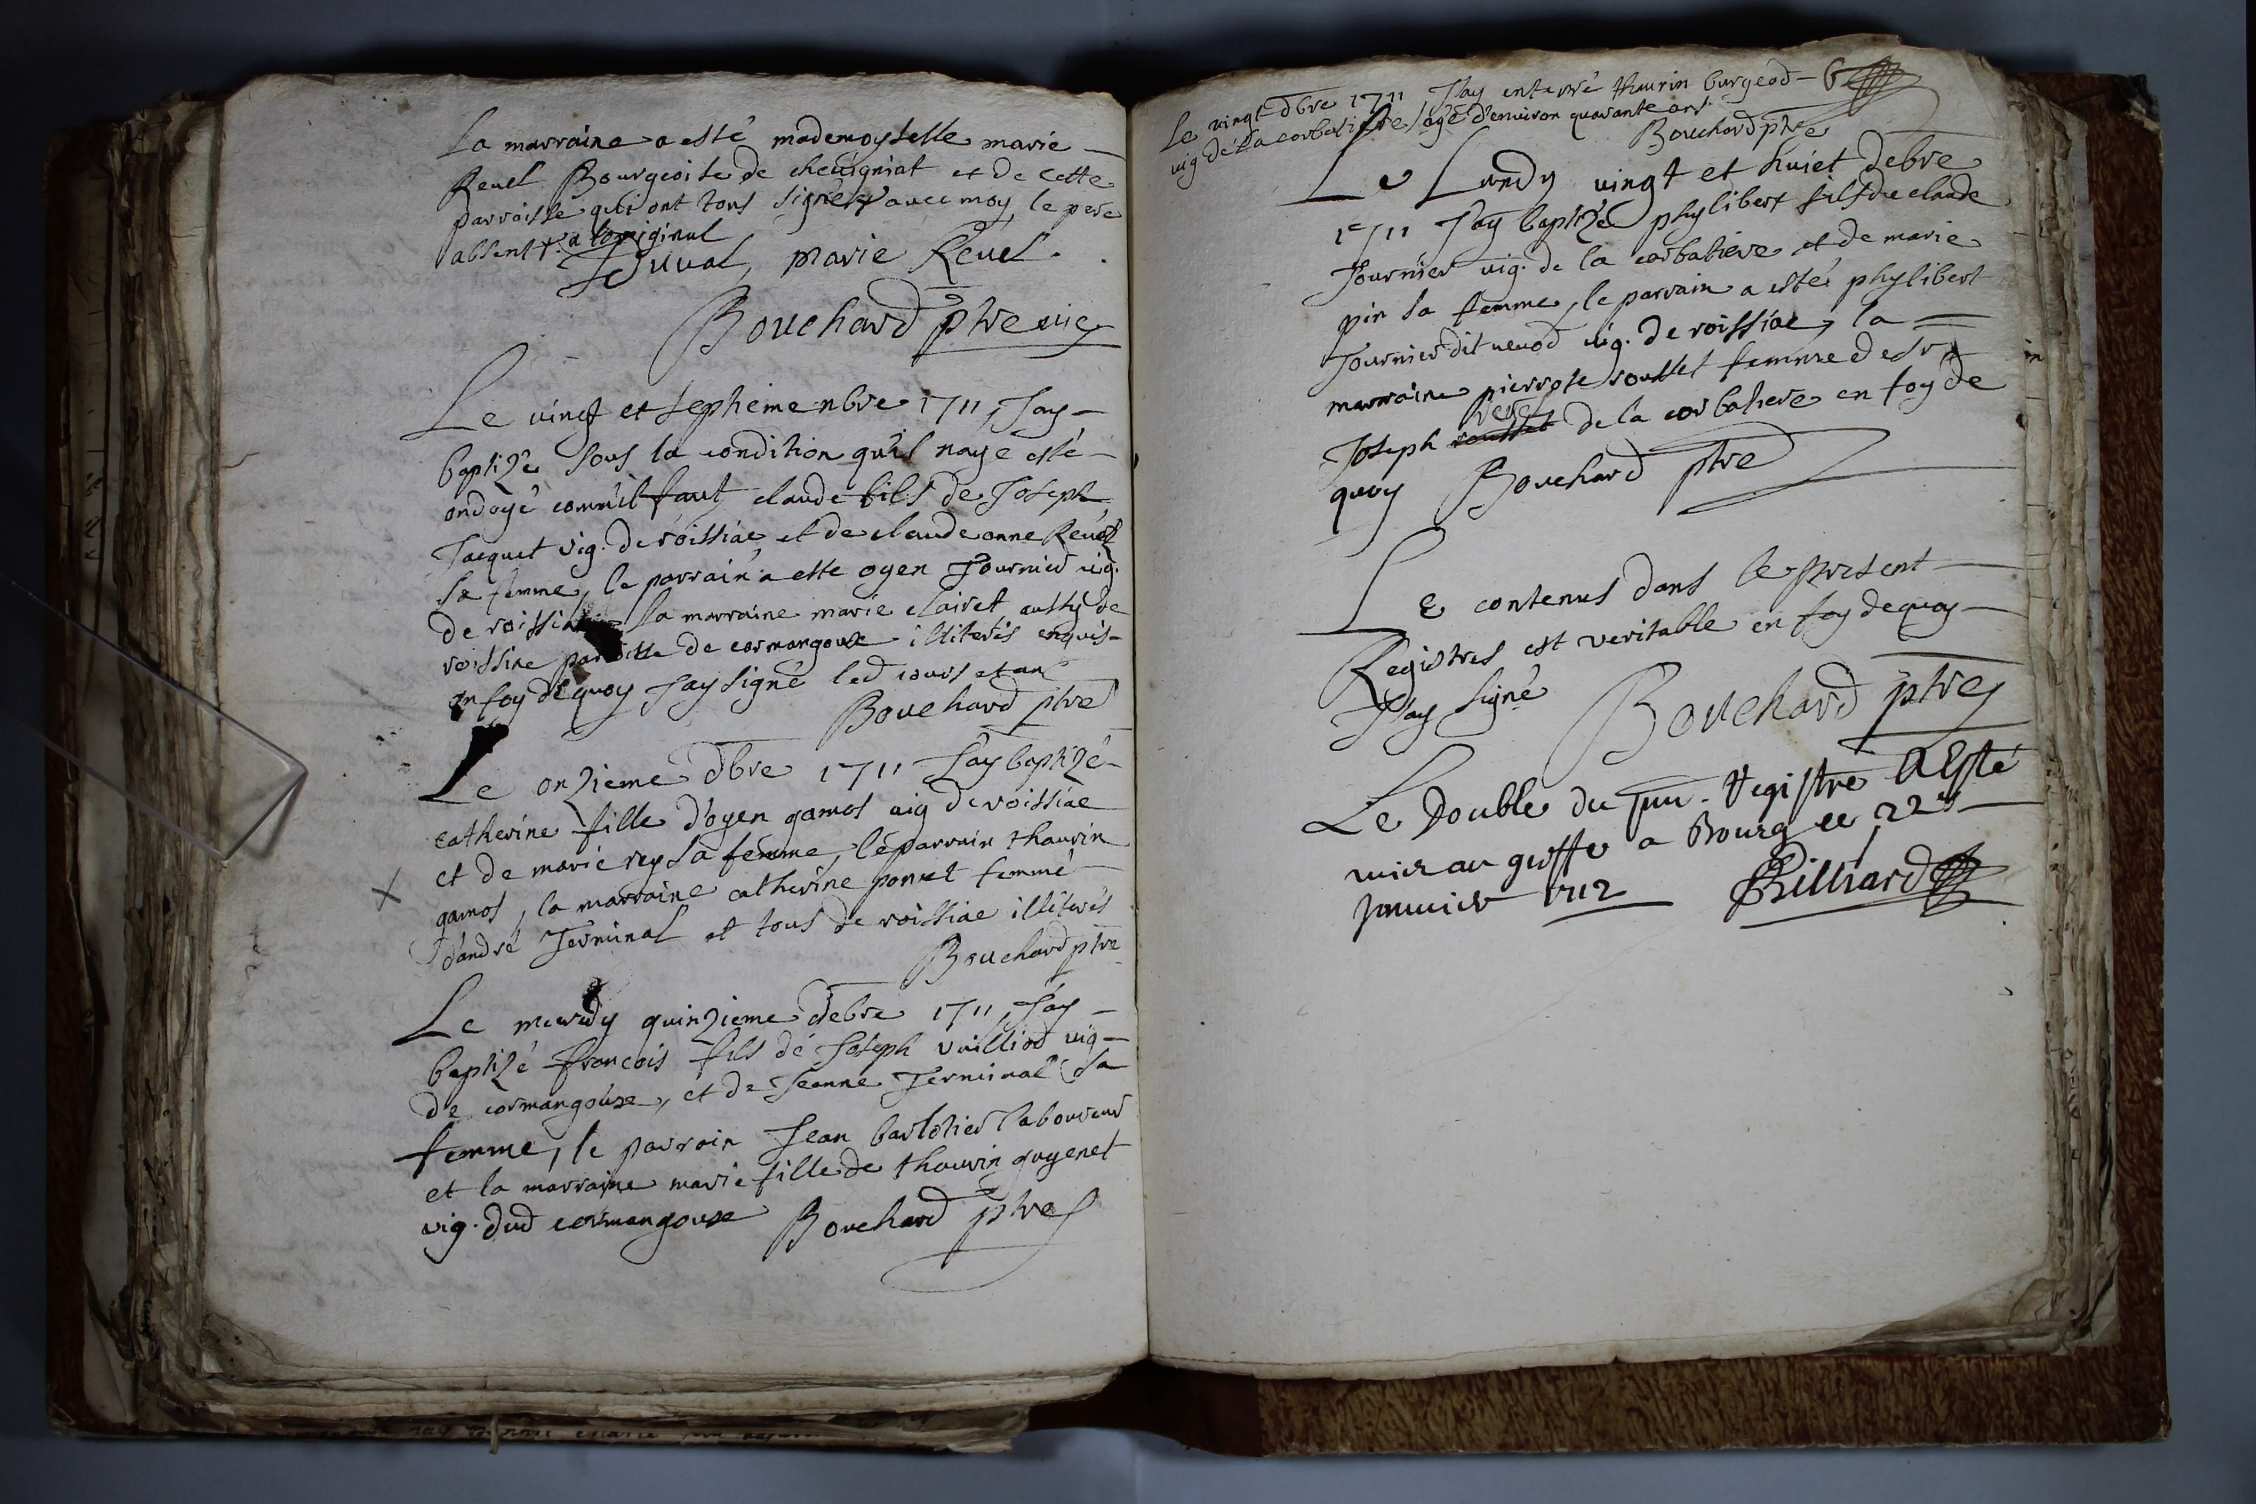 La marraine a esté mademoyselle marie
Revel Bourgeoise de chevigniat et de cette
parroisse qui ont tous signez avec moy le pere
absent a loriginal
Duval, marie Revel.
Bouchard ptre vic
Le vingt et septieme nbre 1711 Jay
baptizé sous la condition quil naye esté
ondoyé comm'il faut claude fils de Joseph
Jacquet vig. de roissiac et de claude anne Revel
sa femme, le parrain a esté oyen Fournier vig.
de roissiac la marraine marie clairet aussy de
roissiac paroisse de cormangoux illiterés enquis
en foy dequoy Jay signé led jours et an
Bouchard ptre
Le onzieme dbre 1711 Jay baptizé
catherine fille d'oyen gamos vig de roissiac
et de marie rey sa femme, le parrain thaurin
gamos, la marraine catherine ponnet femme
d'andré Terminal et tous de roissiac illiterés
Bouchard ptre
Le mardy quinzieme debre 1711 Jay
baptizé francois fils de Joseph vuilliod vig
de cormangouxe, et de Jeanne Terminal sa
femme, le parrain Jean barlotier laboureur
et la marraine marie fille de thaurin guyenet
vig. dud cormangouxe Bouchard ptre
Le vingt dbre 1711 Jay enterré thaurin burgeod
vig de la corbatiere agé d'environ quarante ans
Bouchard ptre
Le Lundy vingt et huict debre
1711 Jay baptizé phylibert fils de claude
Fournier vig. de la corbatiere et de marie
pin sa femme, le parrain a esté phylibert
Fournier dit nevod vig. de roissiac, la
marraine pierrote rousset femme de sr
Joseph rousset revel de la corbatiere en foy de
quoy Bouchard ptre
Le contenus dans le present
Registres est veritable en foy dequoy
Jay signé Bouchard ptre
Le Double du pnt. Registre A Esté
mis au greffe a Bourg ce 22es
janvier 1712 Billiard